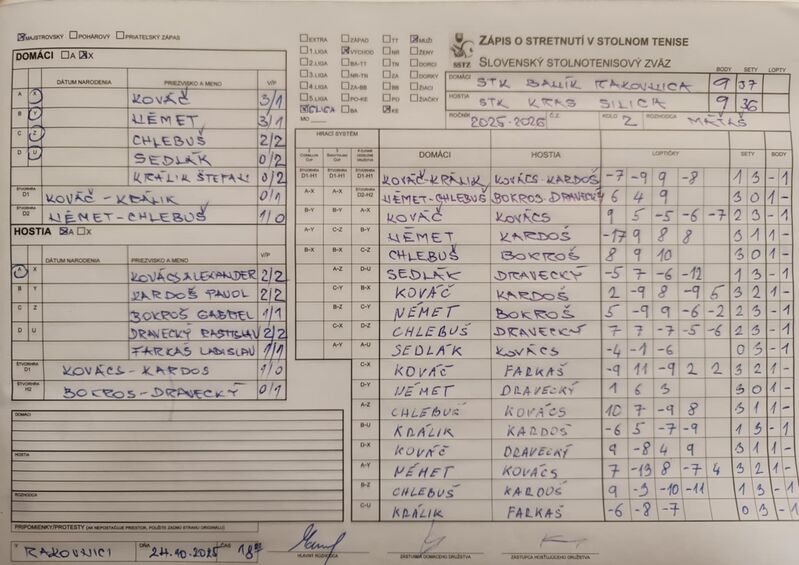 MAJSTROVSKÝ POHÁROVÝ PRIATEĽSKÝ ZÁPAS
DOMÁCI A X
DÁTUM NARODENIA PRIEZVISKO A MENO V/P
A X KOVÁČ 3/1
B Y NÉMET 3/1
C Z CHLEBUŠ 2/2
D U SEDLÁK 0/2
KRÁLIK ŠTEFAN 0/2
ŠTVORHRA D1 KOVÁČ - KRÁLIK 0/1
ŠTVORHRA D2 NÉMET - CHLEBUŠ 1/0
HOSTIA A X
DÁTUM NARODENIA PRIEZVISKO A MENO V/P
A X KOVÁCS ALEXANDER 2/2
B Y KARDOŠ PAVOL 2/2
C Z BOKROŠ GABRIEL 1/1
D U DRAVECKÝ RASTISLAV 2/2
FARKAŠ LADISLAV 1/1
ŠTVORHRA D1 KOVÁCS - KARDOS 1/0
ŠTVORHRA H2 BOKROS - DRAVECKÝ 0/1
DOMÁCI
HOSTIA
ROZHODCA
PRIPOMIENKY/PROTESTY (AK NEPOSTAČUJE PRIESTOR, POUŽITE ZADNÚ STRANU ORIGINÁLU)
V RAKOVNICI DŇA 24.10.2025 ČAS 18 00
HLAVNÝ ROZHODCA ZÁSTUPCA DOMÁCEHO DRUŽSTVA ZÁSTUPCA HOSŤUJÚCEHO DRUŽSTVA
EXTRA ZÁPAD TT MUŽI
1.LIGA VÝCHOD NR ŽENY
2.LIGA BA-TT TN DORCI
3.LIGA NR-TN ZA DORKY
4.LIGA ZA-BB BB ŽIACI
5.LIGA PO-KE PO ŽIAČKY
LIGA BA KE
MO
SSTZ
ZÁPIS O STRETNUTÍ V STOLNOM TENISE
SLOVENSKÝ STOLNOTENISOVÝ ZVÄZ
BODY SETY LOPTY
DOMÁCI STK BANÍK RAKOVNICA 9 37
HOSTIA STK KRAS SILICA 9 36
ROČNÍK 2025-2026 Č.Z. KOLO 2 ROZHODCA MATÁŠ
HRACÍ SYSTÉM
DOMÁCI HOSTIA LOPTIČKY SETY BODY
ŠTVORHRA D1-H1 ŠTVORHRA D1-H1 ŠTVORHRA D1-H1 KOVÁČ-KRÁLIK KOVÁCS-KARDOŠ -7 -9 9 -8 1 3 -1
A-X A-X ŠTVORHRA D2-H2 NÉMET-CHLEBUŠ BOKROS-DRAVECKÝ 6 4 9 3 0 1 -
B-Y B-Y A-X KOVÁČ KOVÁCS 9 5 -5 -6 -7 2 3 -1
A-Y C-Z B-Y NÉMET KARDOŠ -17 9 8 8 3 1 1 -
B-X B-X C-Z CHLEBUŠ BOKROŠ 8 9 10 3 0 1 -
A-Z D-U SEDLÁK DRAVECKÝ -5 7 -6 -12 1 3 -1
C-Y B-X KOVÁČ KARDOŠ 2 -9 8 -9 5 3 2 1 -
B-Z C-Y NÉMET BOKROŠ 5 -9 9 -6 -2 2 3 -1
C-X D-Z CHLEBUŠ DRAVECKÝ 7 7 -7 -5 -6 2 3 -1
A-Y A-U SEDLÁK KOVÁCS -4 -1 -6 0 3 -1
C-X KOVÁČ FARKAŠ -9 11 -9 2 2 3 2 1 -
D-Y NÉMET DRAVECKÝ 1 6 3 3 0 1 -
A-Z CHLEBUŠ KOVÁCS 10 7 -9 8 3 1 1 -
B-U KRÁLIK KARDOŠ -6 5 -7 -9 1 3 -1
D-X KOVÁČ DRAVECKÝ 9 -8 4 9 3 1 1 -
A-Y NÉMET KOVÁCS 7 -13 8 -7 4 3 2 1 -
B-Z CHLEBUŠ KARDOŠ 9 -3 -10 -11 1 3 -1
C-U KRÁLIK FARKAŠ -6 -8 -7 0 3 -1